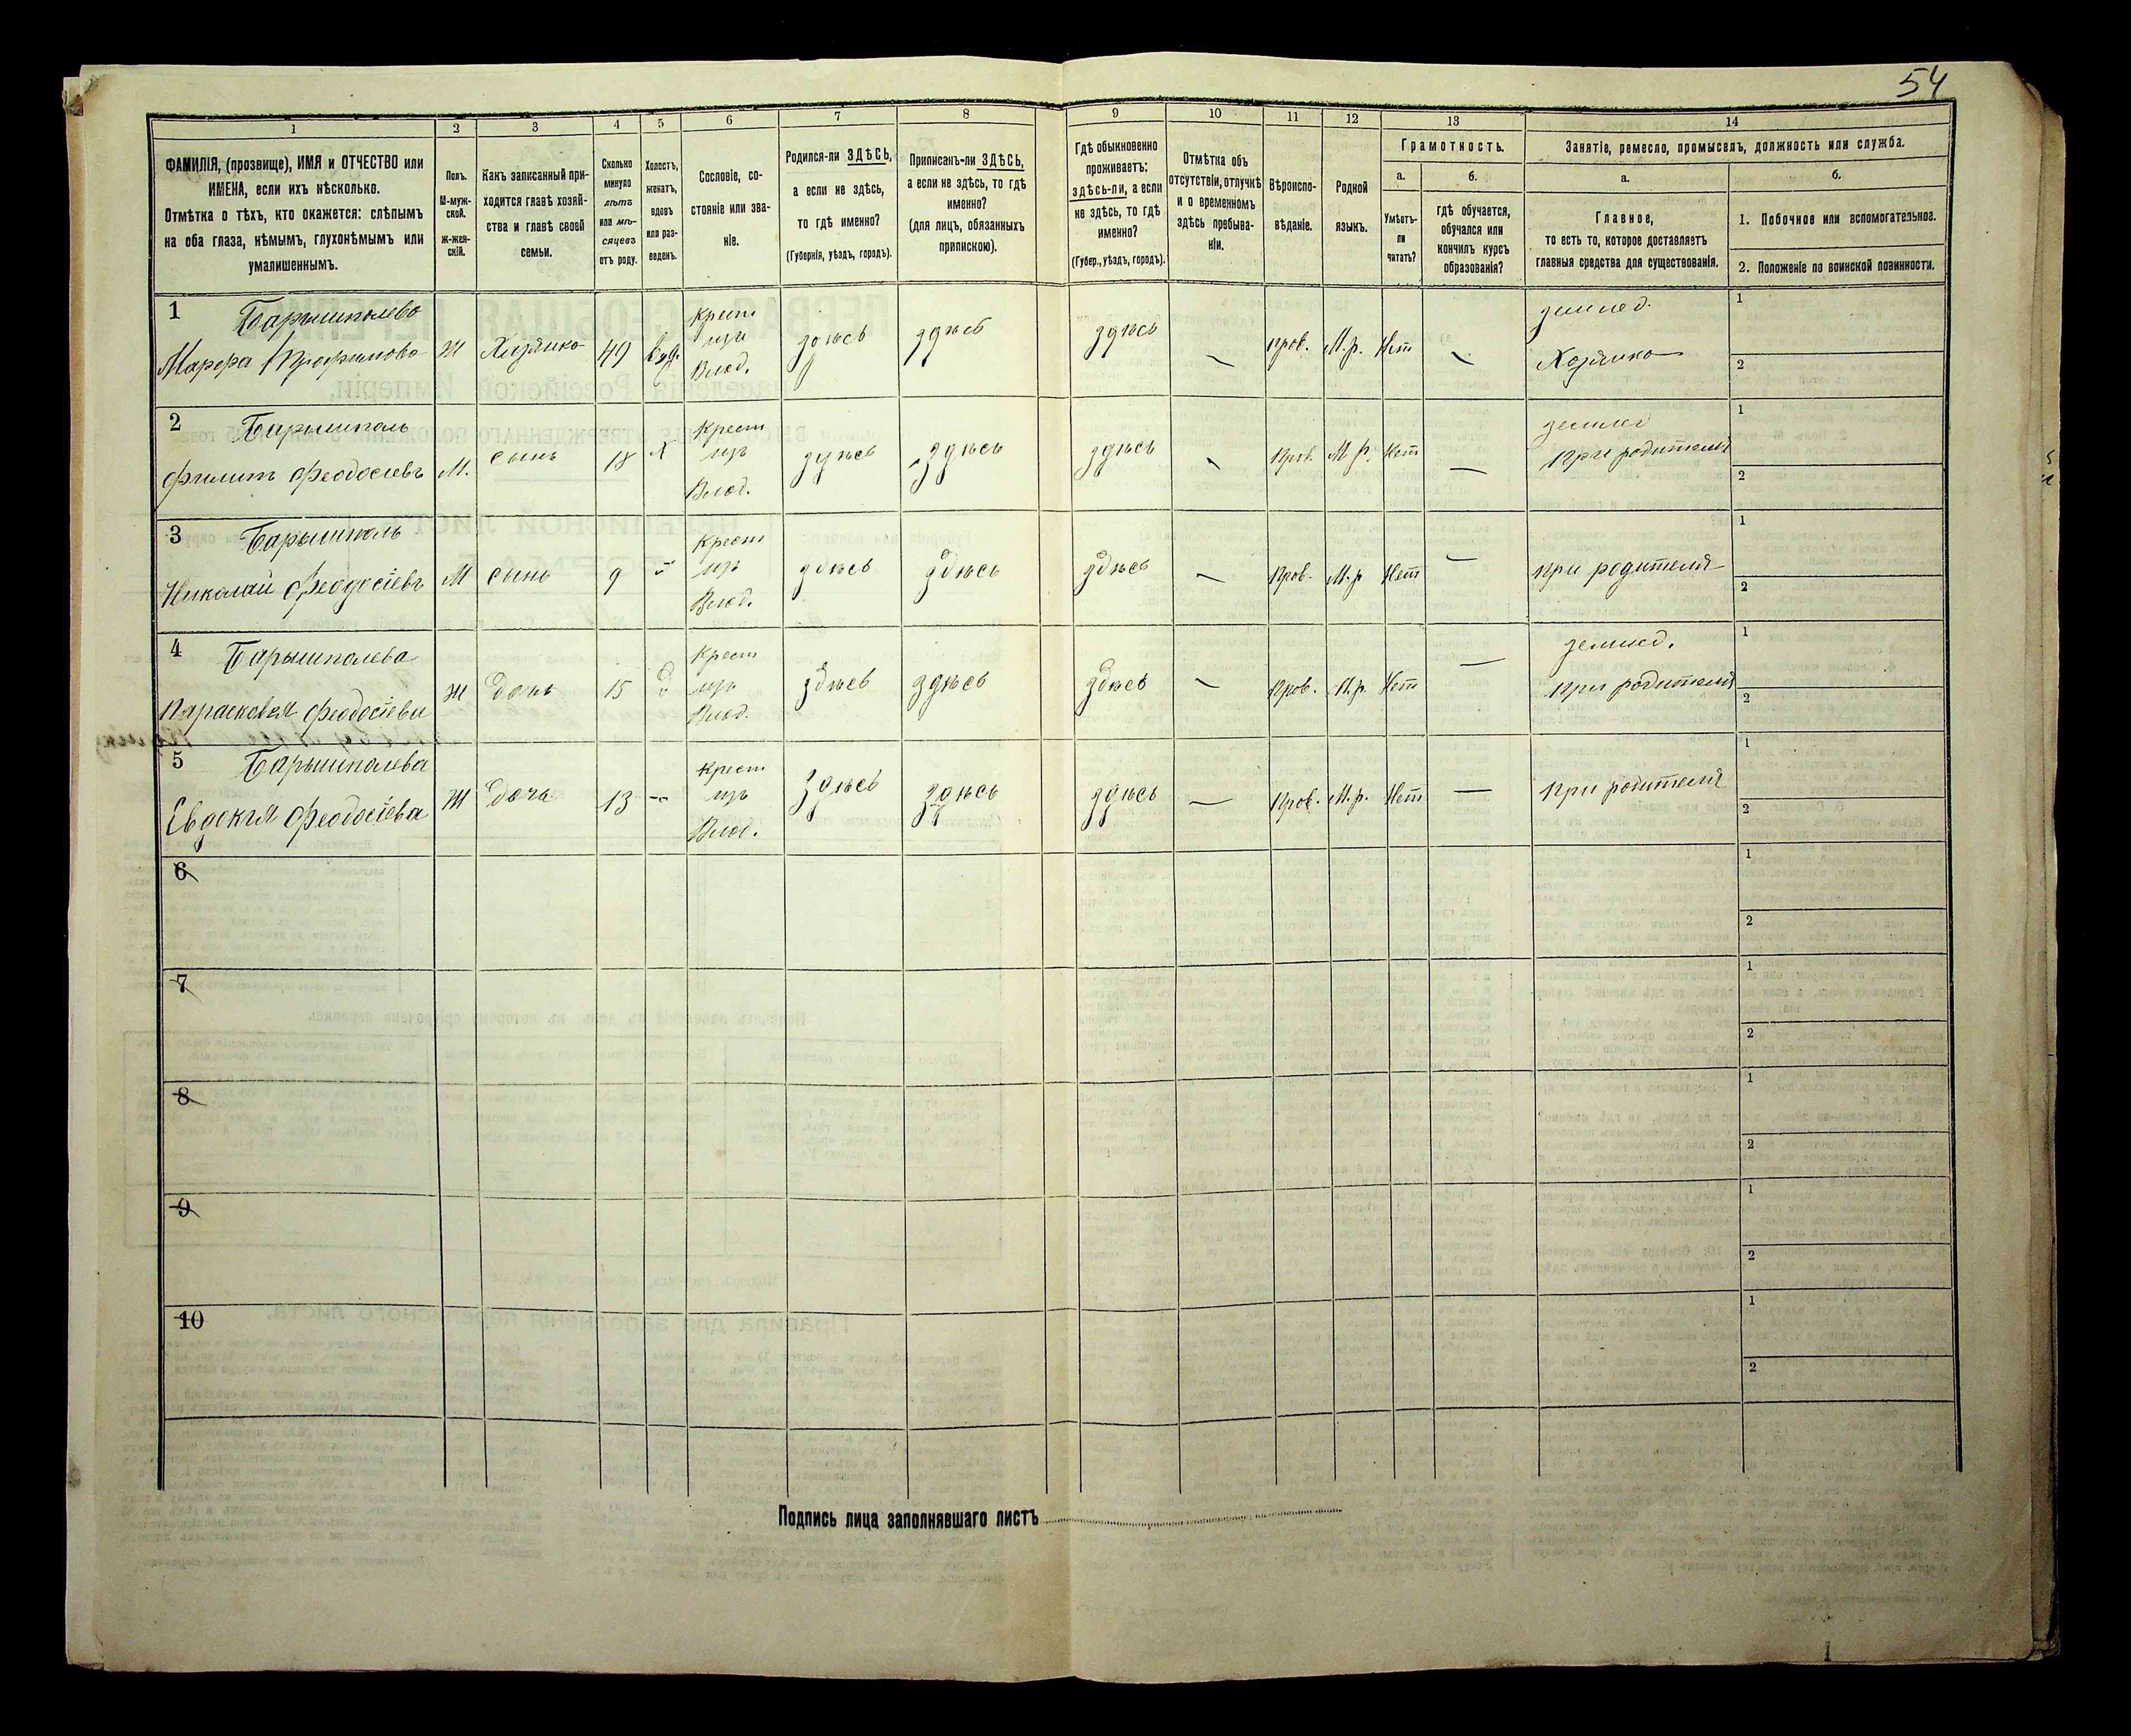 54
1 2 3 4 5 6 7 8 9 10 11 12 13 14
ФАМИЛІЯ, (прозвище), ИМЯ и ОТЧЕСТВО или
ИМЕНА, если ихъ нѣсколько.
Отмѣтка о тѣхъ, кто окажется: слѣпымъ
на оба глаза, нѣмымъ, глухонѣмымъ или
умалишеннымъ.
Полъ.
М-муж-
ской.
Ж-жен-
скій.
Какъ записанный при-
ходится главѣ хозяй-
ства и главѣ своей
семьи.
Сколько
минуло
лѣтъ
или мѣ-
сяцевъ
отъ роду.
Холостъ,
женатъ,
вдовъ
или раз-
веденъ.
Сословіе, со-
стояніе или зва-
ніе.
Родился-ли ЗДѢСЬ,
а если не здѣсь,
то гдѣ именно?
(Губернія, уѣздъ, городъ).
Приписанъ-ли ЗДѢСЬ,
а если не здѣсь, то гдѣ
именно?
(для лицъ, обязанныхъ
припискою).
Гдѣ обыкновенно
проживаетъ:
здѣсь-ли, а если
не здѣсь, то гдѣ
именно?
(Губер., уѣздъ, городъ).
Отмѣтка объ
отсутствіи, отлучкѣ
и о временномъ
здѣсь пребыва-
ніи.
Вѣроиспо-
вѣданіе.
Родной
языкъ.
Грамотность.
а.
Умѣетъ-
ли
читать?
б.
гдѣ обучается,
обучался или
кончилъ курсъ
образованія?
Занятіе, ремесло, промыселъ, должность или служба.
а.
Главное,
то есть то, которое доставляетъ
главныя средства для существованія.
б.
1. Побочное или вспомогательное.
2. Положеніе по воинской повинности.
1 Барышполева Крест землед. 1
Марфа Трофимова Ж Хозяйка 49 вдв. изъ здѣсь здѣсь здѣсь — Прав. М.р. Нет — Хозяйка 2
Влад.
2 Барышполь Крест землед 1
Филипъ Феодосіевъ М. сынъ 18 х изъ здѣсь здѣсь здѣсь — Прав. М р. Нет — При родителя 2
Влад.
3 Барышполь Крест 1
Николай Феодосіевъ М сынъ 9 — изъ здѣсь здѣсь здѣсь — Прав. М.р Нет — при родителя 2
Влад.
4 Барышполева Крест землед. 1
Параскевья Феодосіева Ж дочь 15 д изъ здѣсь здѣсь здѣсь — Прав. М.р. Нет — при родителя 2
Влад.
5 Барышполева Крест 1
Евдокія Феодосіева Ж дочь 13 — изъ здѣсь здѣсь здѣсь — Прав. М.р. Нет — При родителя 2
Влад.
6 1
2
7 1
2
8 1
2
9 1
2
10 1
2
Подпись лица заполнявшаго листъ